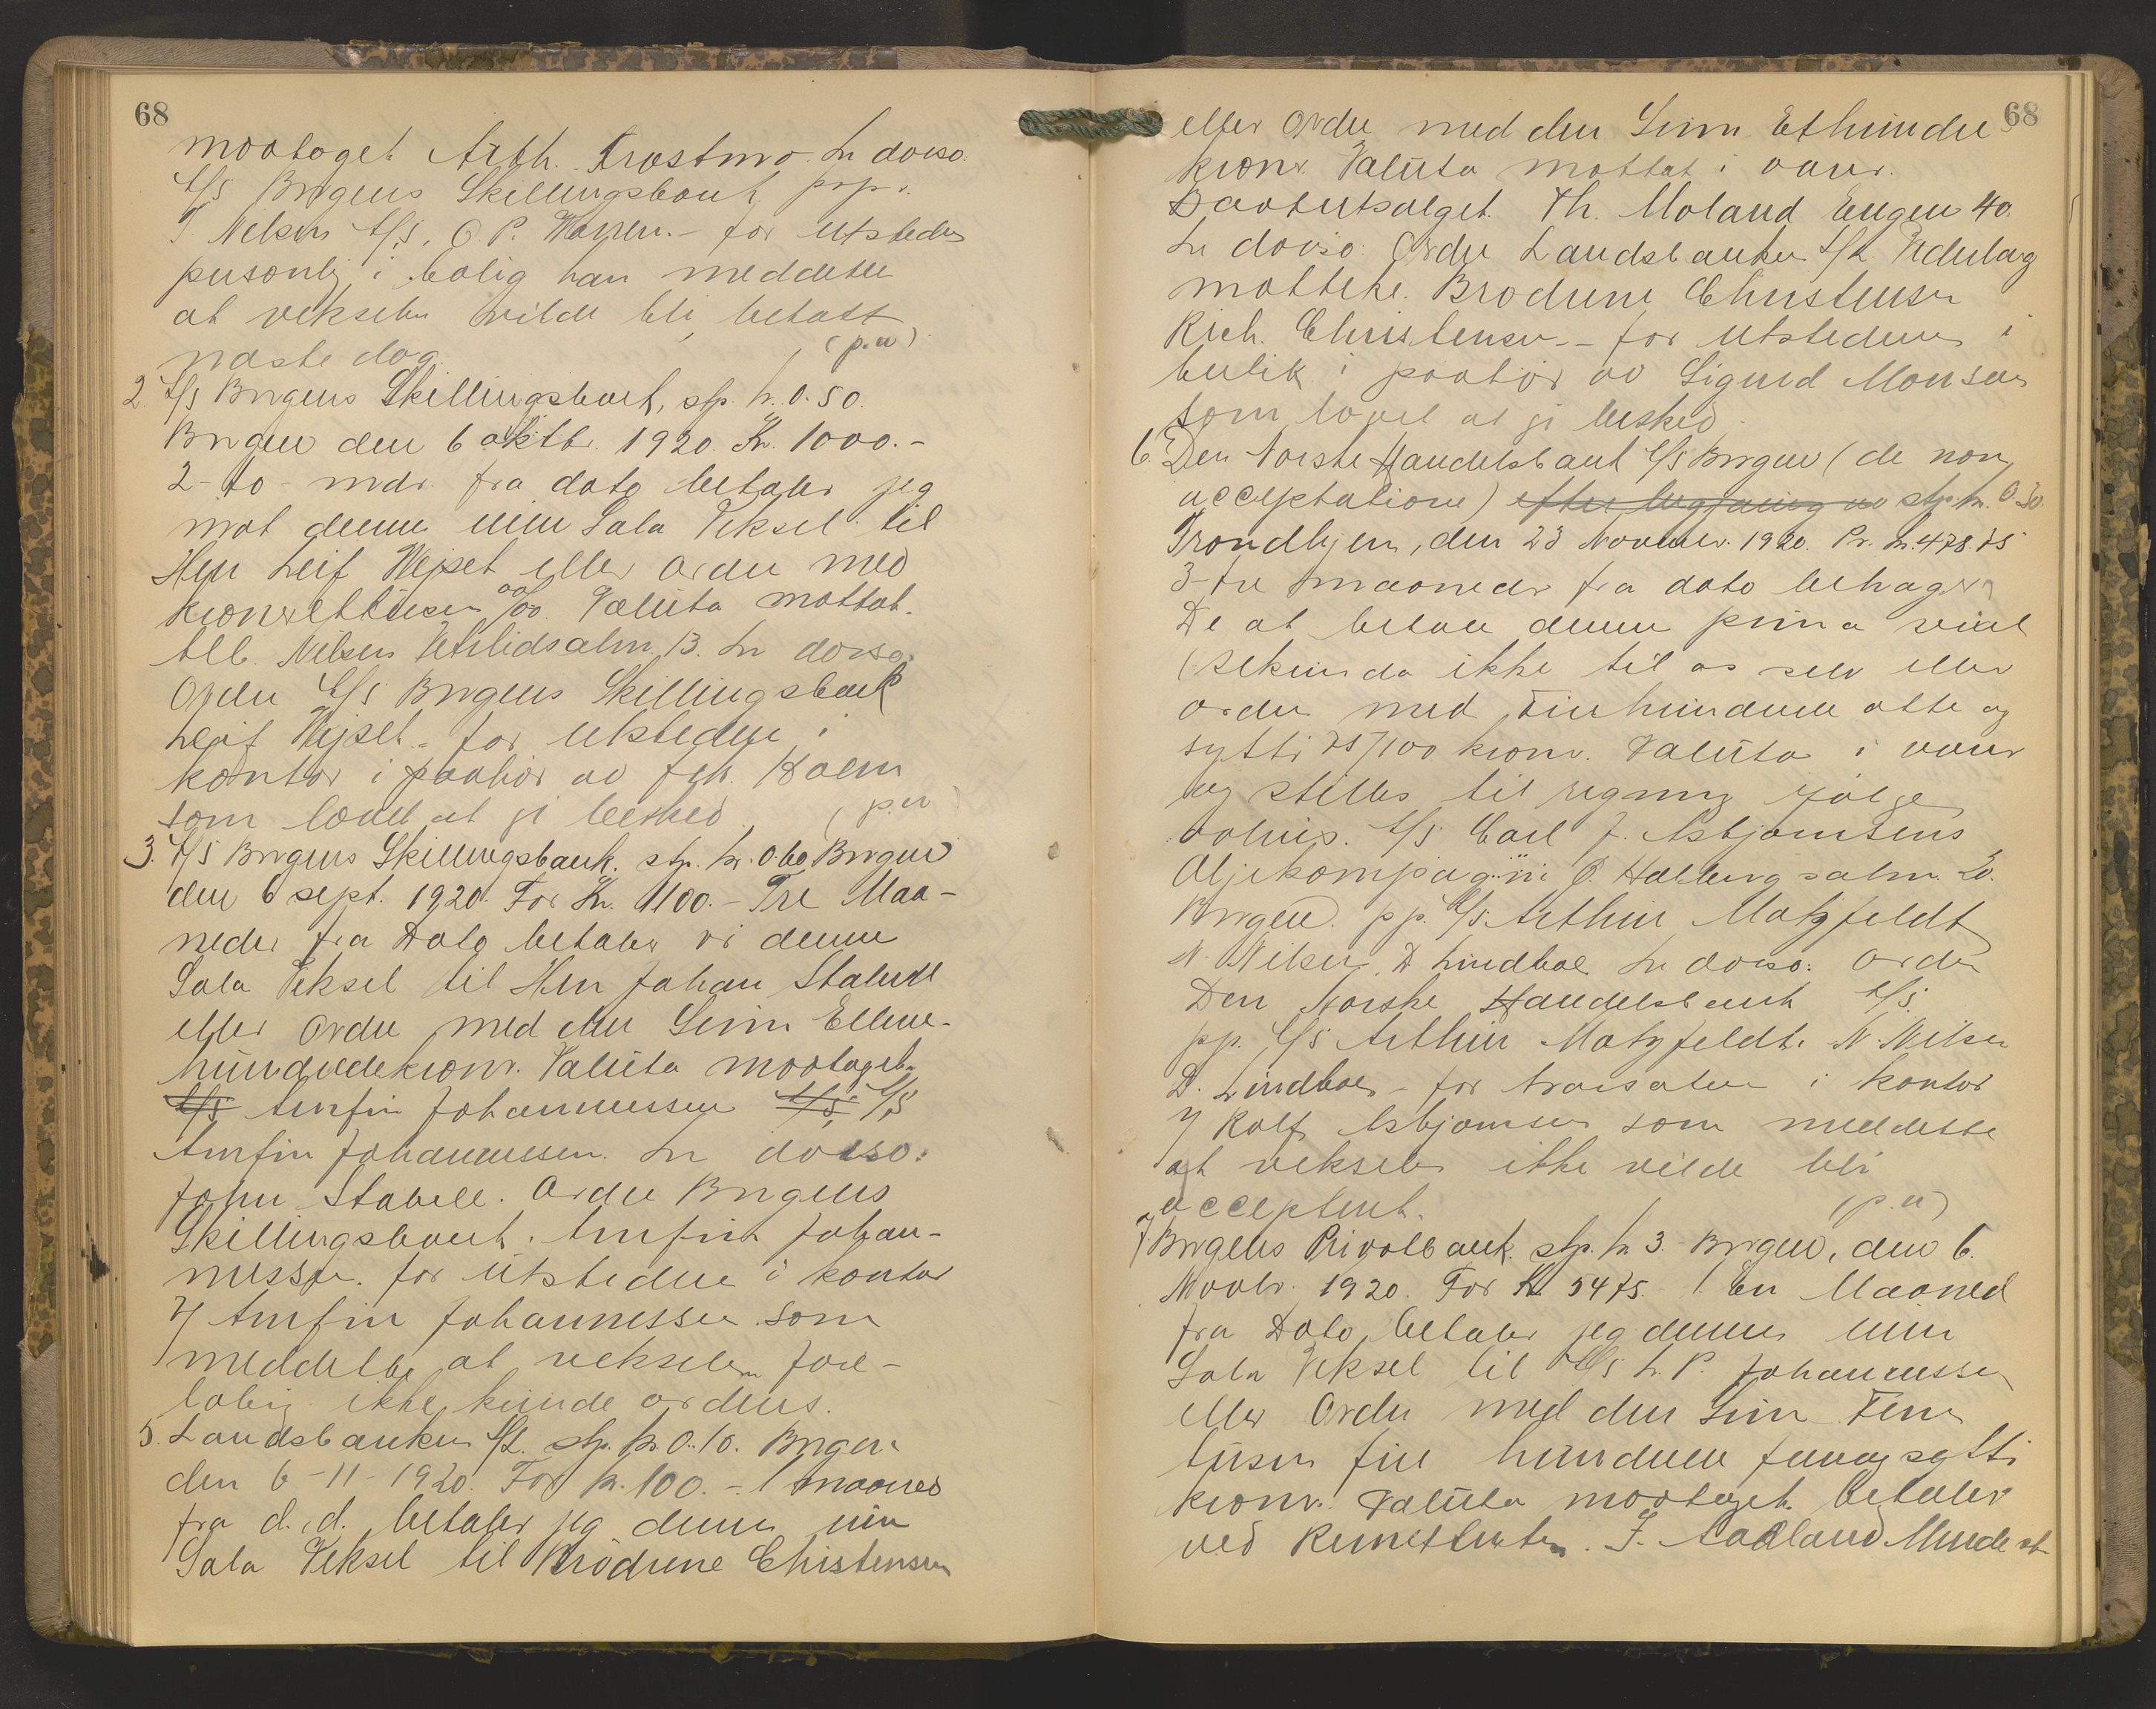 68
mootaget Arth. Trostmo. In dorso:
A/S Bergens Skillingsbank prp.
T. Nelsen A/S, O. P. – for utsteder
personlig i bolig han meddelte
at vekselen vilde bli betalt
næste dag. (p.u)
2. A/S Bergens Skillingsbank, stp. kr. 0.50.
Bergen den 6 oktbr. 1920. Kr. 1000.-
2 - to - mdr. fra dato betaler jeg
mot denne min Sola Veksel til
Herr Leif Wejset eller ordre med
kroner ettusen 00/00. Valuta mottat.
Alb. Nilsen Vetrlidsalm. 13. In dorso:
Ordre A/S Bergens Skillingsbank
Leif Wejset - for utstedere i
kontor i paahør av frk. Holm
som lovet at gi besked. (p.u)
3. A/S Bergens Skillingsbank. stp. kr. 0.60 Bergen
den 6 sept. 1920. For Kr. 1100.- Tre Maa-
neder fra Dato betaler vi denne
Sola Veksel til Herr Johan Stabell
eller Ordre med den Sum Elleve-
hundredekroner. Valuta mootaget.
A/S Arnfin Johannessen A/S, A/S
Arnfin Johannessen. In dorso:
John Stabell. Ordre Bergens
Skillingsbank. Arnfin Johan-
nessen. for utstedere i kontor
v/ Arnfin Johannessen som
meddelte at vekselen fore-
løbig ikke kunde ordnes.
5. Landsbanken A/L. stp. kr. 0.10. Bergen
den 6-11-1920. For kr. 100.- 1 maaned
fra d. d. betaler jeg denne min
Sola Veksel til Brødrene Christensen
68
eller Ordre med den Sum Ethundre
kroner Valuta mottat i varer.
Baatutsalget. Th. Moland Engen 40.
In dorso: Ordre Landsbanken A/L. Vederlag
mottatt. Brødrene Christensen
Rich. Christensen - for utstederen i
butik i paahør av Sigurd Monsen
som lovet at gi besked.
6. Den Norske Handelsbank A/S Bergen (de non
acceptatione) efter begjæring av stp. kr. 0.30.
Trondhjem, den 23 November 1920. Pr. kr. 478.75
3 - tre maaneder fra dato behager
De at betale denne prima veksel
(sekunda ikke til os selv eller
ordre med Firehundrede otte og
sytti 75/100 kroner. Valuta i varer
og stilles til regning ifølge
advis. A/S Carl J. Asbjørnsens
Oljekompagni Ø. Holbergsalm. 20.
Bergen. pp. A/S Arthur Motzfeldt
N. Nilsen, D Lindboe In dorso: Ordre
Den Norske Handelsbank A/S.
pp. A/S Arthur Motzfeldt. N. Nilsen
D. Lindboe - for trassaten i kontor
v/ Rolf Asbjørnsen som meddelte
at vekselen ikke vilde bli
acceptert. (p.u)
7. Bergens Privatbank. stp. kr 3.- Bergen, den 6.
Novbr. 1920. For Kr. 5475.- 1 En Maaned
fra Dato betaler jeg denne min
Sola Veksel til A/S L. P. Johannessen
eller Ordre med den Sum Fem
tusen fire hundrede femogsytti
kroner. Valuta mootaget. betaler
ved Remittenten. J. Aadland Minde st.